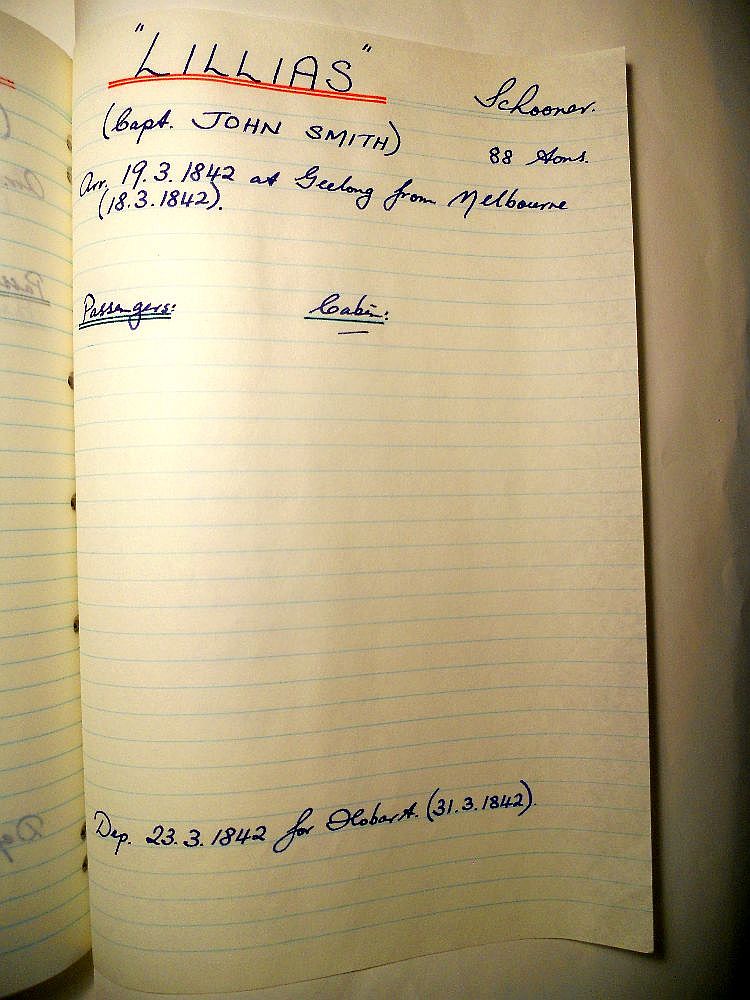 "LILLIAS"
Schooner.
(Capt. JOHN SMITH)
88 tons.
Arr. 19.3.1842 at Geelong from Melbourne
(18.3.1842).
Passengers: Cabin:
—
Dep. 23.3.1842 for Hobart. (31.3.1842).